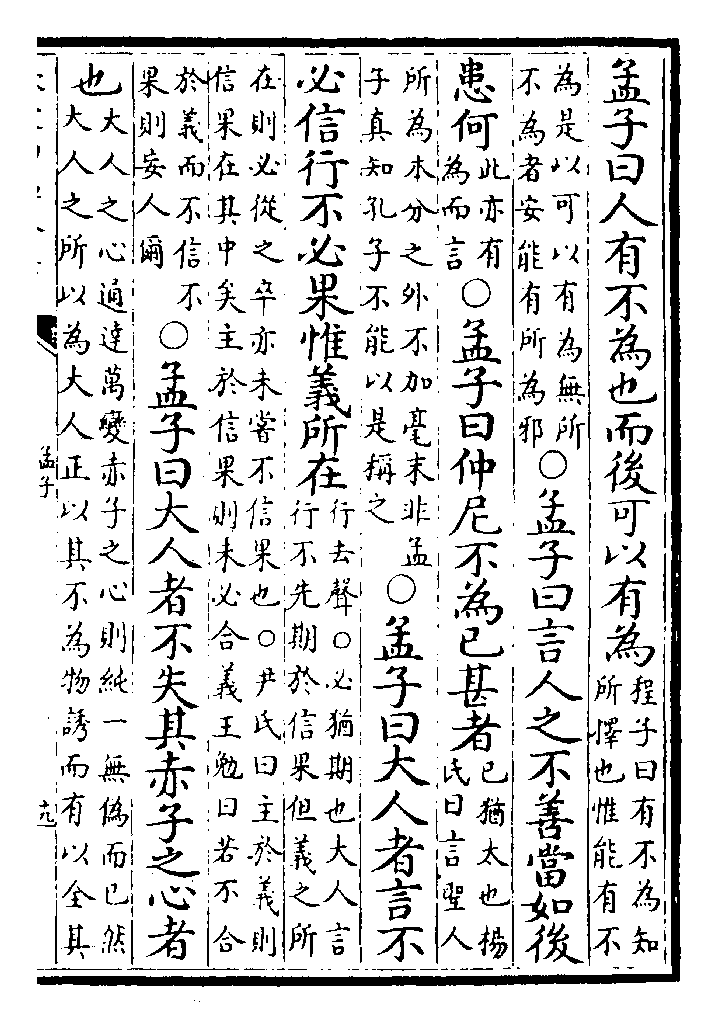 孟子曰人有不為也而後可以有為程子曰有不為知所擇也惟能有不
為是以可以有為無所不為者安能有所為邪○孟子曰言人之不善當如後
患何此亦有為而言○孟子曰仲尼不為已甚者已猶太也楊氏曰言聖人
所為本分之外不加毫末非孟子真知孔子不能以是稱之○孟子曰大人者言不
必信行不必果惟義所在行去聲○必猶期也大人言行不先期於信果但義之所
在則必從之卒亦未嘗不信果也○尹氏曰主於義則信果在其中矣主於信果則未必合義王勉曰若不合
於義而不信不果則妄人爾○孟子曰大人者不失其赤子之心者
也大人之心通達萬變赤子之心則純一無偽而已然大人之所以為大人正以其不為物誘而有以全其
孟子
十九